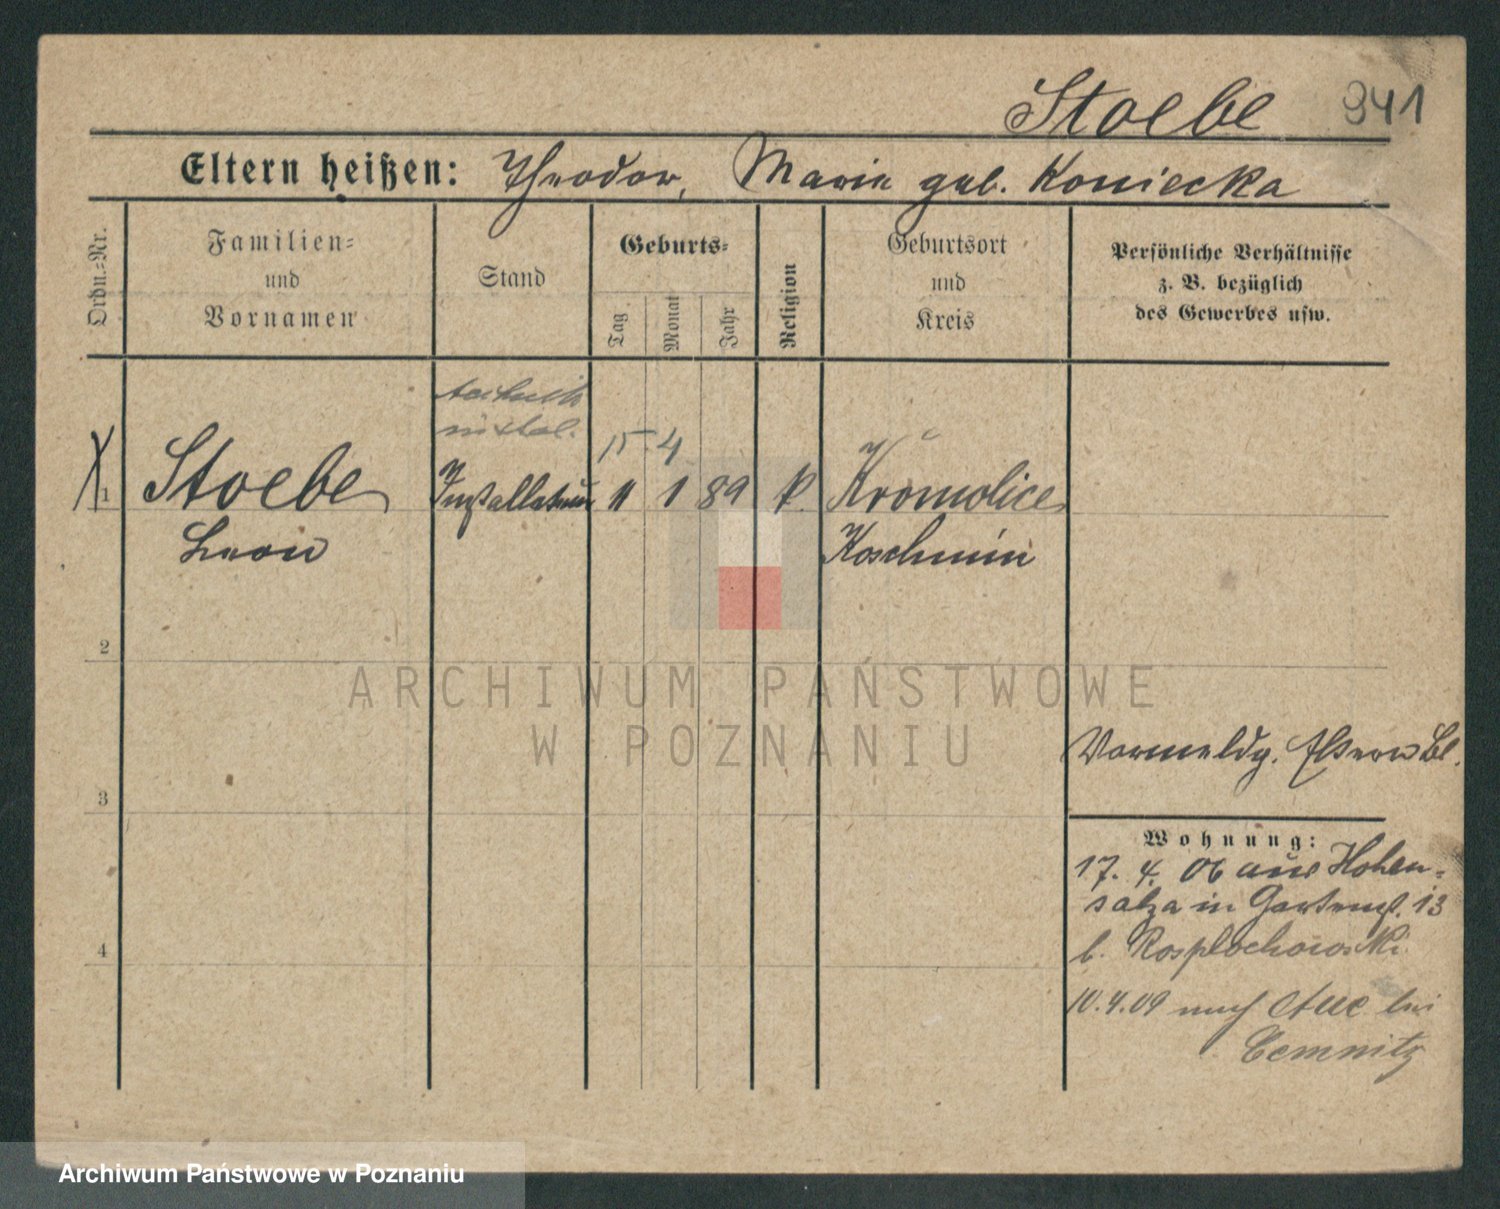 Stoebe 941
Eltern heißen: Theodor, Marie geb. Koniecka
Ordn.=Nr.
Familien=
und
Vornamen
Stand
Geburts=
Tag
Monat
Jahr
Religion
Geburtsort
und
Kreis
Persönliche Verhältnisse
z. B. bezüglich
des Gewerbes usw.
15. 4
1 Stoebe 11 1 89 k. Kromolice
Leon Koschmin
2
3
4
Vormeldg. Eltern Bl.
Wohnung:
17. 4. 06 aus Hohen-
salza in Gartenst. 13
b. Rosplochowski
10.4.09 nach Aue bei
Cemnitz
ARCHIWUM PAŃSTWOWE
W POZNANIU
Archiwum Państwowe w Poznaniu